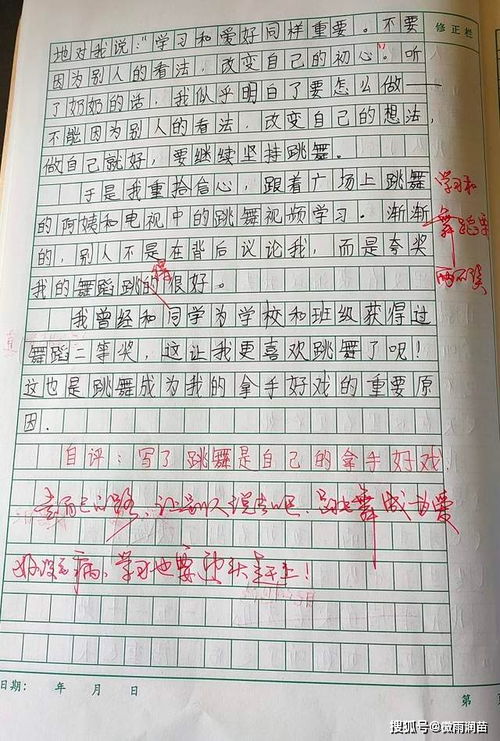 修正栏
地对我说："学习和爱好同样重要。不要
因为别人的看法，改变自己的初心。"听
了奶奶的话，我似乎明白了要怎么做——
不能因为别人的看法，改变自己的想法，
做自己就好，要继续坚持跳舞。
于是我重拾信心，跟着广场上跳舞
的阿姨和电视中的跳舞视频学习。渐渐
的，别人不是在背后议论我，而是夸奖
我的舞蹈跳的很好。
得
学习和
舞蹈要
两不误
我曾经和同学为学校和班级获得过
舞蹈二等奖，这让我更喜欢跳舞了呢！
这也是跳舞成为我的拿手好戏的重要原
因.
自评：写了跳舞是自己的拿手好戏.
走自己的路，让别人说去吧，跳舞成为爱
好没毛病，学习也要迎头赶上！
日期： 年 月 日
第
搜狐号@微雨润苗